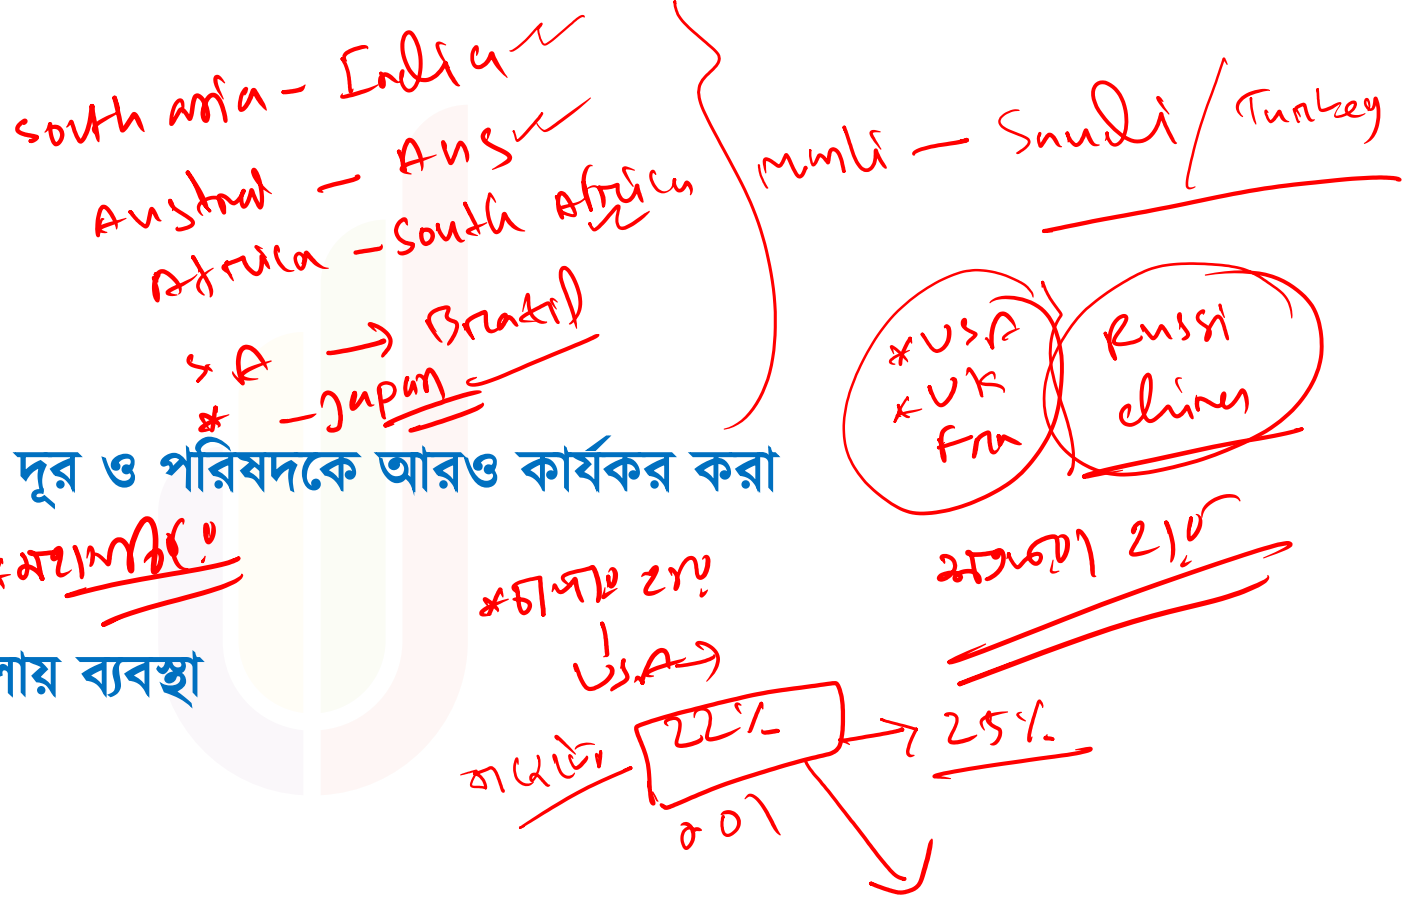 South asia - India
Austral - Aus
Africa - South Africa
S A → Brazil
* - Japan
Muslim - Saudi / Turkey
*USA
*UK
Fra
Russi
China
দূর ও পরিষদকে আরও কার্যকর করা
*মহাসচিবের
*চাঁদার হার
USA →
লায় ব্যবস্থা
বাজেটের 22% → 25%